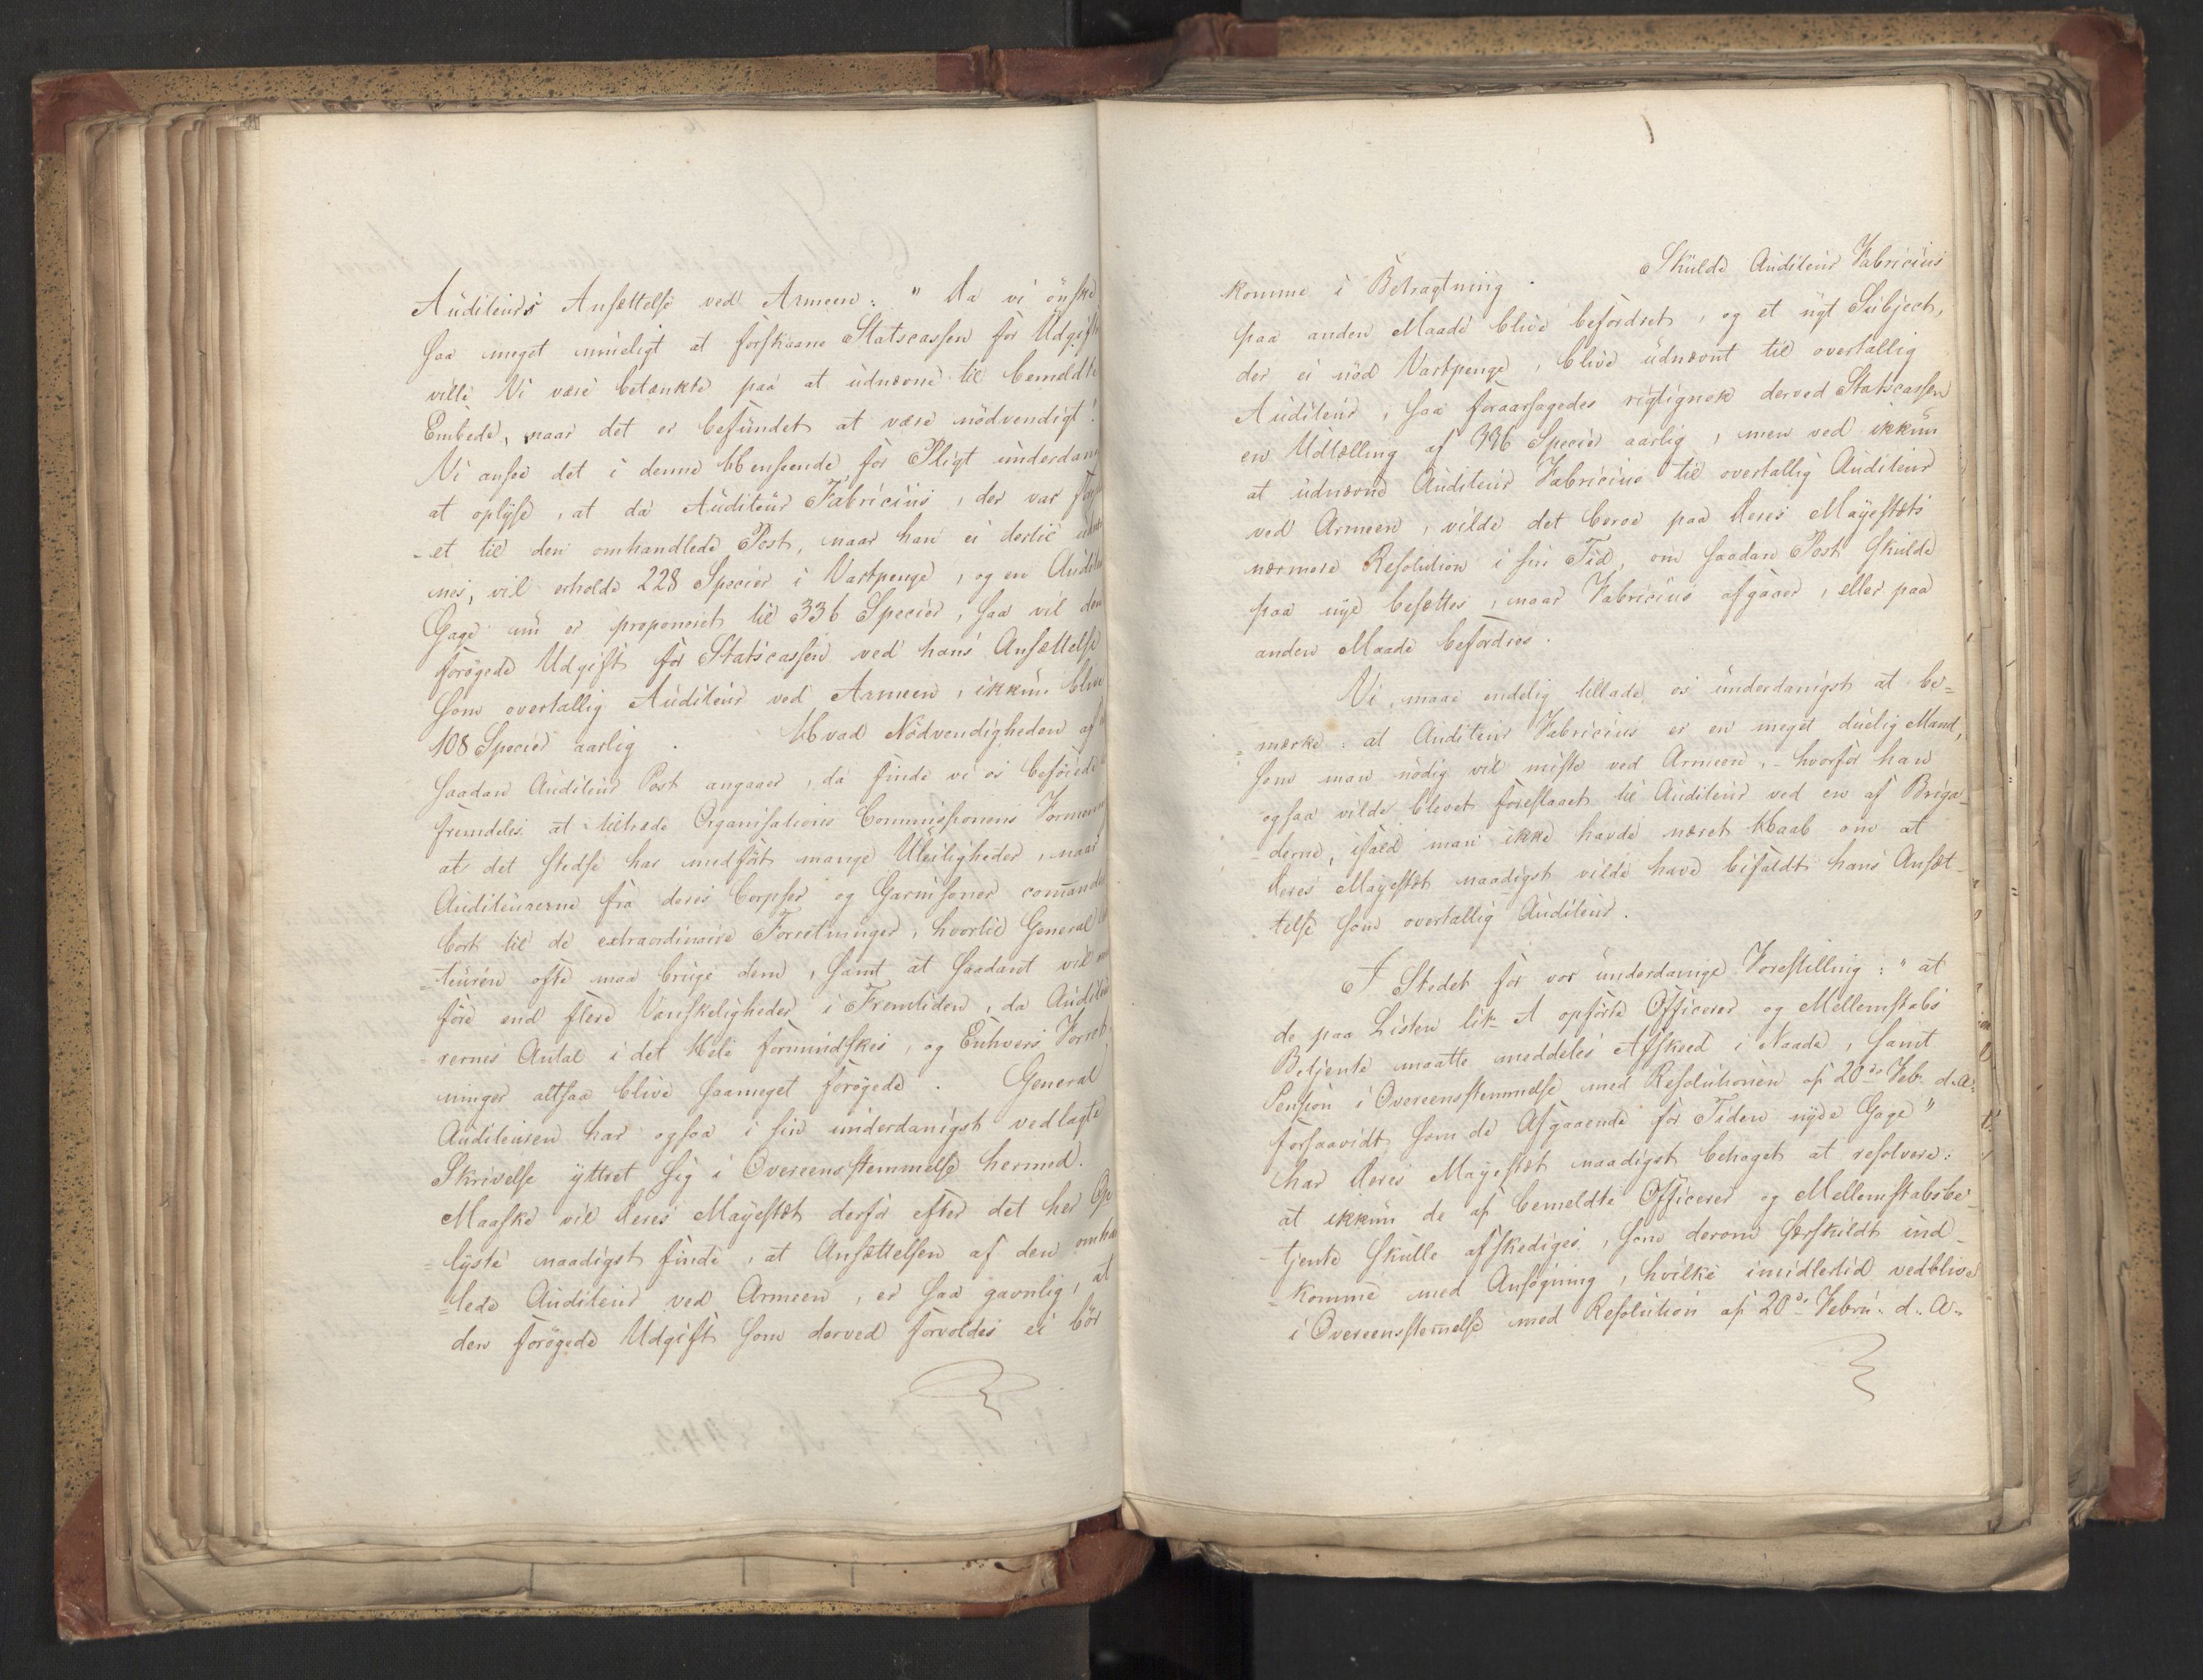 Auditeurs Ansættelse ved Armeen: "Da vi önske
saa meget mueligt at forskaane Statscassen for Udgift
ville Vi være betænkte paa at udnævne til bemeldte
Embede, naar det er befundet at være nödvendigt".
Vi ansee det i denne Henseende for Pligt underdan
at oplyse, at da Auditeur Fabricius, der var
-et til den omhandlede Post, naar han ei dertil
nes, vil erholde 228 Specier i Vartpenge, og en Audit
Gage nu er proponeret til 336 Specier, saa vil den
forögede Udgift for Statscassen ved hans Ansættelse
som overtallig Auditeur ved Armeen, ikkun blive
108 Specier aarlig. Hvad Nödvendigheden af
saadan Auditeur Post angaaer, da finde vi os beföiede
fremdeles at tiltræde Organisations Commissionens Formen
at det stedse har medfört mange Uleiligheder, naar
Auditeurerne fra deres Corpser og Garnisoner com̄ande
bort til de extraordinaire Forretninger, hvortil General
=teuren ofte maa bruge dem, samt at saadant vil
före end flere Vanskeligheder i Fremtiden, da Auditeu
=rernes Antal i det Hele formindskes, og Enhvers Forret
ninger altsaa blive saameget forögede. General
Auditeuren har ogsaa i sin underdanigst vedlagte
Skrivelse yttret sig i Overeensstemmelse hermed.
Maaske vil Deres Mayestæt derfor efter det her Op
=lyste naadigst finde, at Ansættelsen af den omha
=lede Auditeur ved Armeen, er saa gavnlig, at
den forögede Udgift som derved forvoldes ei bör
komme i Betragtning. Skulde Auditeur Fabricius
paa anden Maade blive befordret, og et nyt Subject,
der ei nöd Vartpenge, blive udnævnt til overtallig
Auditeur, saa foraarsagedes rigtignok derved Statscassen
en Udtælling af 336 Specier aarlig, men ved ikkun
at udnævne Auditeur Fabricius til overtallig Auditeur
ved Armeen, vilde det beroe paa Deres Mayestæts
nærmere Resolution i sin Tid, om saadan Post skulde
paa nye besættes, naar Fabricius afgaaer, eller paa
anden Maade befordres.
Vi maae endelig tillade os underdanigst at be=
=mærke: at Auditeur Fabricius er en meget duelig Mand,
som man nödig vil miste ved Armeen, - hvorfor han
ogsaa vilde blevet foreslaaet til Auditeur ved en af Briga-
-derne, ifald man ikke havde næret Haab om at
Deres Mayestæt naadigst vilde have bifaldt hans Ansæt-
telse som overtallig Auditeur.
I Stedet for vor underdanige Forestilling: "at
de paa Listen litr A opförte Officerer og Mellemstabs
Betjente maatte meddeles Afskeed i Naade, samt
Pension i Overeensstemmelse med Resolutionen af 20de Feb. d.A.
forsaavidt som de Afgaaende for Tiden nyde Gage"
har Deres Mayestæt naadigst behaget at resolvere:
at ikkun de af bemeldte Officerer og Mellemstabsbe-
-tjente skulle afskediges, som derom særskildt ind-
=komme med Ansögning, hvilke imidlertid vedblive
i Overeensstem̄else med Resolution af 20de Febru. d. A.